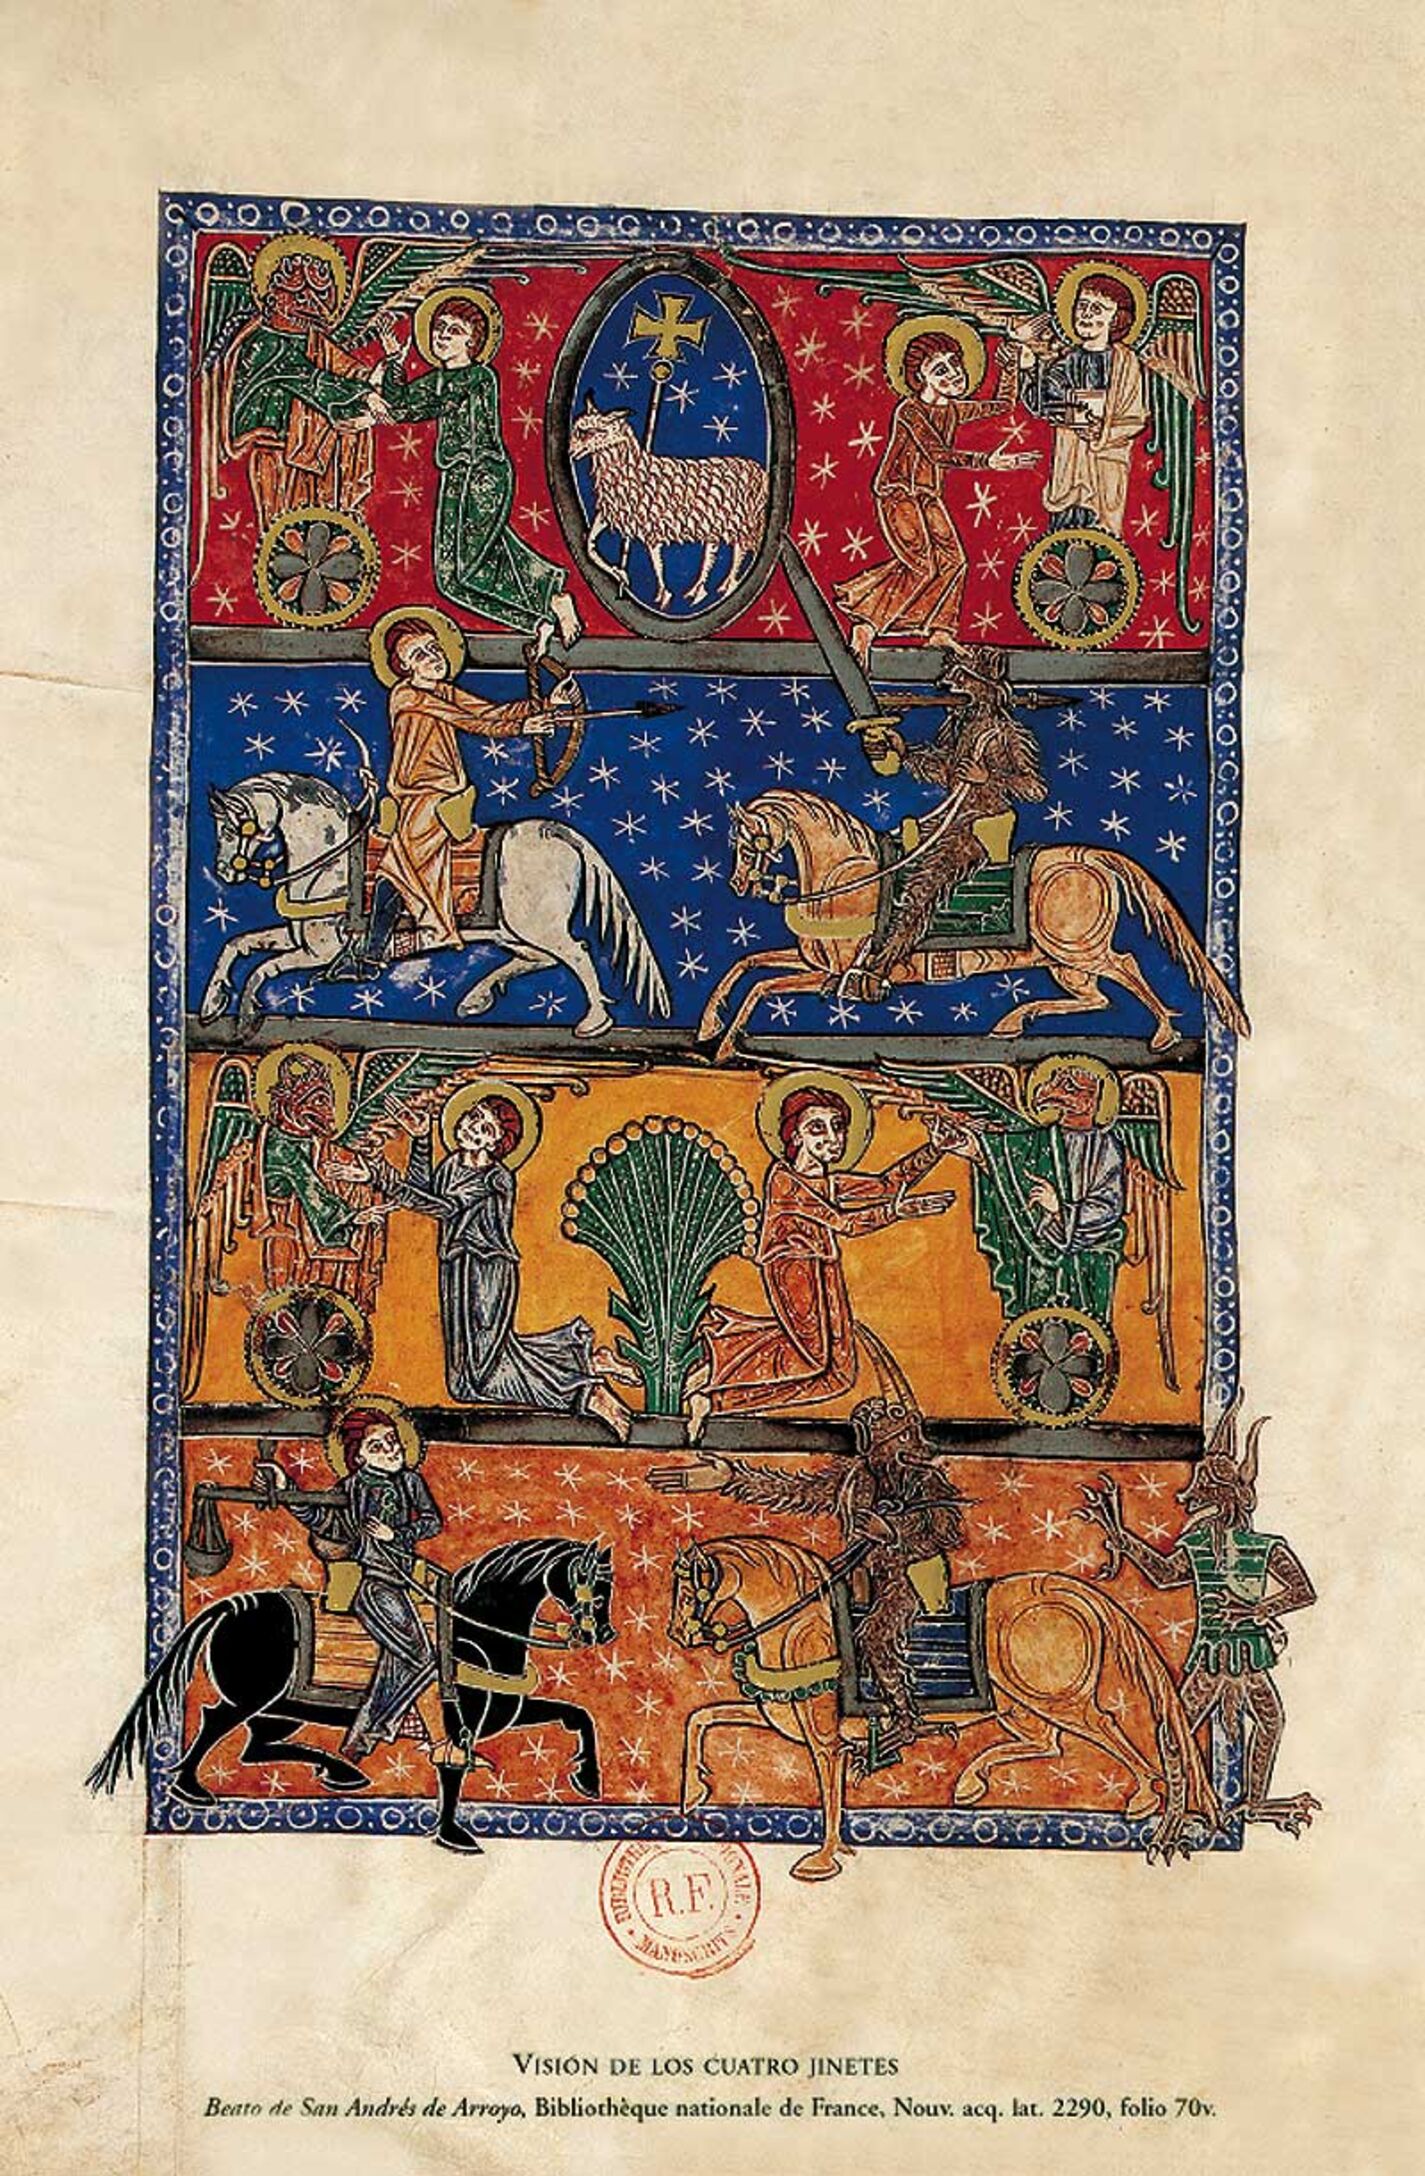 BIBLIOTHÈQUE NATIONALE
R.F.
MANUSCRITS
VISIÓN DE LOS CUATRO JINETES
Beato de San Andrés de Arroyo, Bibliothèque nationale de France, Nouv. acq. lat. 2290, folio 70v.